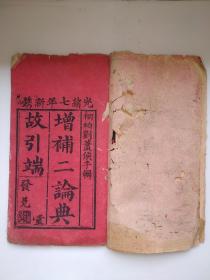 光緒七年新鐫
桐柏劉蕭侯手輯
增補二論典
故引端
發兌